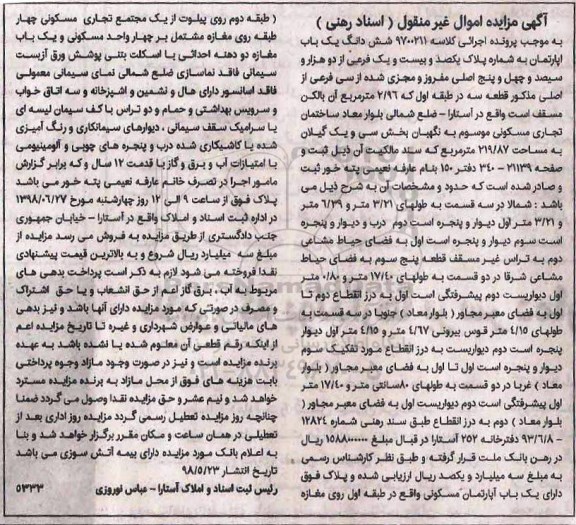 آگهی مزایده اموال غیر منقول ( اسناد رهنی )
به موجب پرونده اجرائی کلاسه ۹۷۰۰۲۱۱ شش دانگ یک باب
اپارتمان به شماره پلاک یکصد و بیست و یک فرعی از دو هزار و
سیصد و چهل و پنج اصلی مفروز و مجزی شده از سی فرعی از
اصلی مذکور قطعه سه در طبقه اول که ۲/۹۶ مترمربع آن بالکن
مسقف است واقع در آستارا – ضلع شمالی بلوار معاد ساختمان
تجاری مسکونی موسوم به نگهبان بخش سی و یک گیلان
به مساحت ۲۱۹/۸۷ مترمربع که سند مالکیت آن ذیل ثبت و
صفحه ۲۱۱۳۹ – ۳۴۰ دفتر ۱۵۰ بنام عارفه نعیمی پته خور ثبت
و صادر شده است که حدود و مشخصات آن به شرح ذیل می
باشد : شمالا در سه قسمت به طولهای ۳/۲۱ متر و ۶/۳۹ متر
و ۳/۲۱ متر اول دیوار و پنجره است دوم درب و دیوار و پنجره
است سوم دیوار و پنجره است اول به فضای حیاط مشاعی
دوم به تراس غیر مسقف قطعه پنج سوم به فضای حیاط
مشاعی شرقا در دو قسمت به طولهای ۱۷/۴۰ متر و ۰/۸۰ متر
اول دیواریست دوم پیشرفتگی است اول به درز انقطاع دوم تا
اول به فضای معبر مجاور ( بلوار معاد ) جنوبا در سه قسمت به
طولهای ۴/۱۵ متر قوس بیرونی ۴/۶۷ متر و ۴/۱۵ متر اول دیوار
پنجره است دوم دیواریست به درز انقطاع مورد تفکیک سوم
دیوار و پنجره است اول تا اول به فضای معبر مجاور ( بلوار
معاد ) غربا در دو قسمت به طولهای ۸۰سانتی متر و ۱۷/۴۰ متر
اول پیشرفتگی است دوم دیواریست اول به فضای معبر مجاور (
بلوار معاد ) دوم به درز انقطاع طبق سند رهنی شماره ۱۲۸۲۴
– ۹۳/۶/۸ دفترخانه ۲۵۲ آستارا در قبال مبلغ ۱۵۸۸۰۰۰۰۰۰ ریال
در رهن بانک ملت قرار گرفته و طبق نظر کارشناس رسمی
به مبلغ سه میلیارد و یکصد ریال ارزیابی شده و پلاک فوق
دارای یک باب آپارتمان مسکونی واقع در طبقه اول روی مغازه
( طبقه دوم روی پیلوت از یک مجتمع تجاری مسکونی چهار
طبقه روی مغازه مشتمل بر چهار واحد مسکونی و یک باب
مغازه دو دهنه احداثی با اسکلت بتنی پوشش ورق آزبست
سیمانی فاقد نماسازی ضلع شمالی نمای سیمانی معمولی
فاقد اسانسور دارای هال و نشمین و اشپزخانه و سه اتاق خواب
و سرویس بهداشتی و حمام و دو تراس با کف سیمان لیسه ای
یا سرامیک سقف سیمانی ، دیوارهای سیمانکاری و رنگ آمیزی
شده یا کاشیکاری شده درب و پنجره های چوبی و آلومینیومی
با امتیازات آب و برق و گاز با قدمت ۱۲ سال و که برابر گزارش
مامور اجرا در تصرف خانم عارفه نعیمی پته خور می باشد
پلاک فوق از ساعت ۹ الی ۱۲ روز چهارشنبه مورخ ۱۳۹۸/۰۶/۲۷
در اداره ثبت اسناد و املاک واقع در آستارا – خیابان جمهوری
جنب دادگستری از طریق مزایده به فروش می رسد مزایده از
مبلغ سه میلیارد ریال شروع و به بالاترین قیمت پیشنهادی
نقدا فروخته می شود لازم به ذکر است پرداخت بدهی های
مربوط به آب ، برق گاز اعم از حق انشعاب و یا حق اشتراک
و مصرف در صورتی که مورد مزایده دارای آنها باشد و نیز بدهی
های مالیاتی و عوارض شهرداری و غیره تا تاریخ مزایده اعم
از اینکه رقم قطعی آن معلوم شده یا نشده باشد به عهده
برنده مزایده است و نیز در صورت وجود مازاد وجوه پرداختی
بابت هزینه های فوق از محل مازاد به برنده مزایده مسترد
خواهد شد و نیم عشر و حق مزایده نقدا وصول می گردد ضمنا
چنانچه روز مزایده تعطیل رسمی گردد مزایده روز اداری بعد از
تعطیلی در همان ساعت و مکان مقرر برگزار خواهد شد و بنا
به اعلام بانک مورد مزایده دارای بیمه آتش سوزی می باشد
تاریخ انتشار ۹۸/۵/۲۳
رئیس ثبت اسناد و املاک آستارا – عباس نوروزی ۵۳۳۳